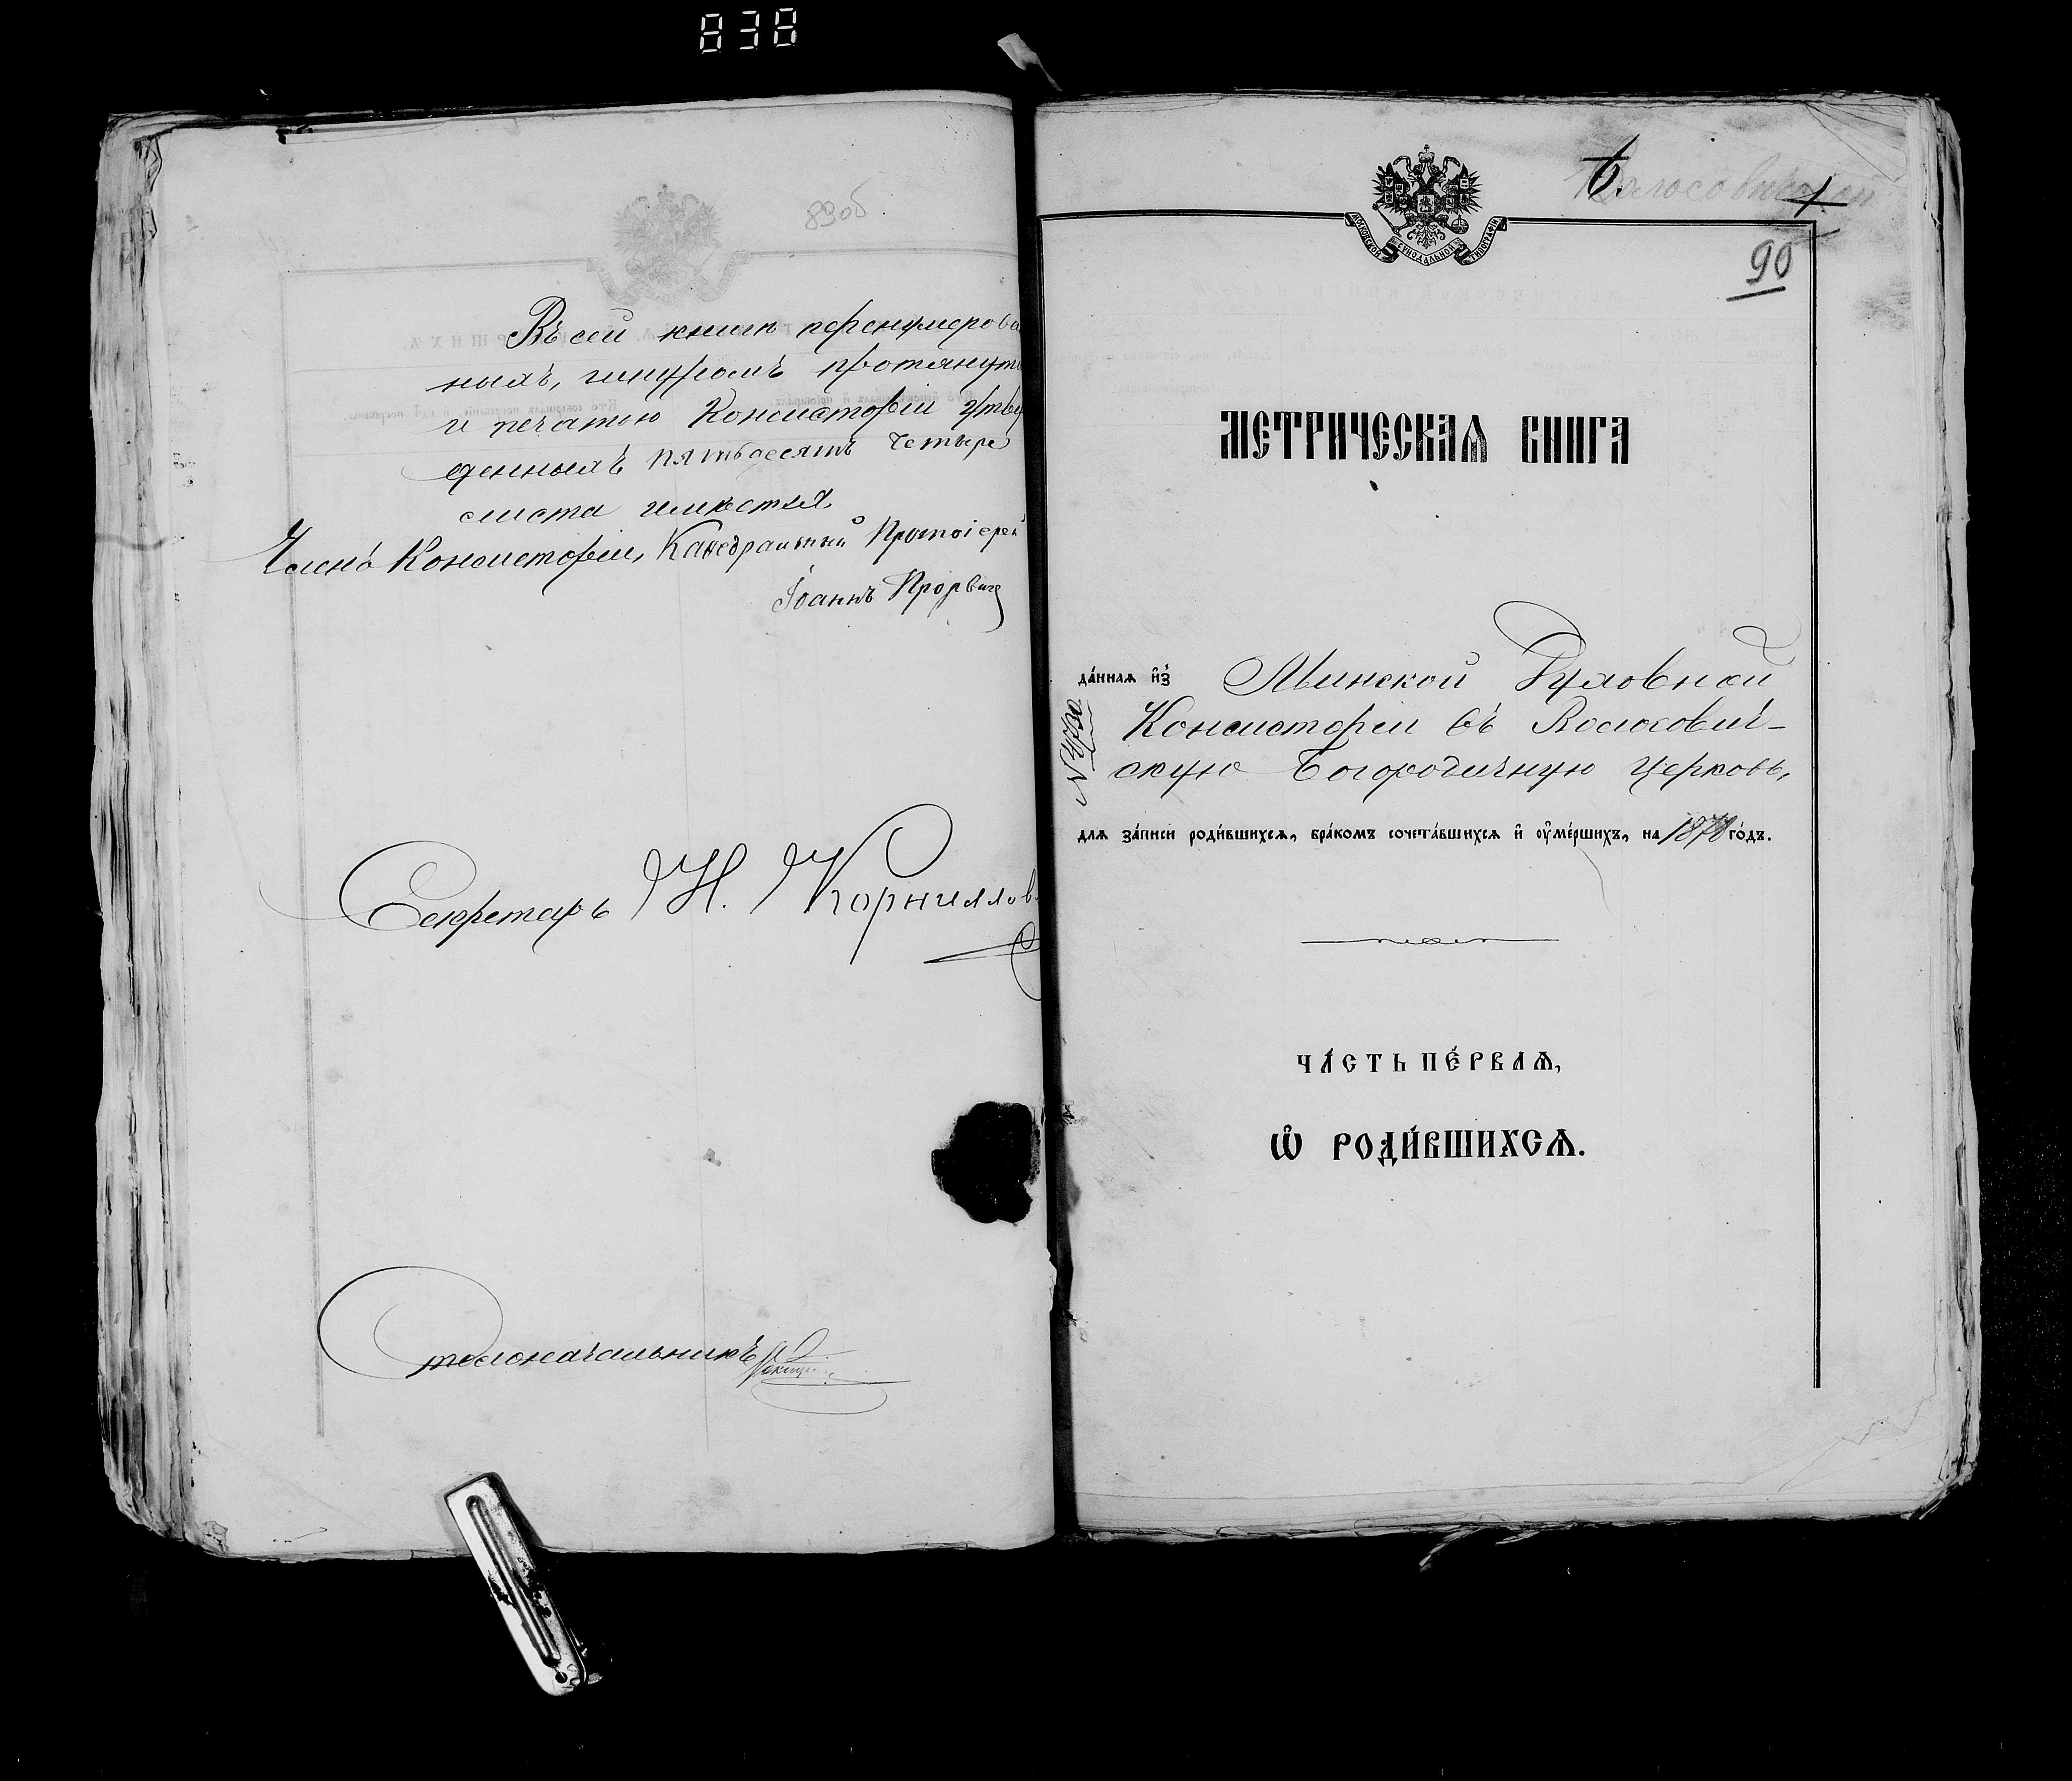 838
89об
Въ сей книгѣ перенумерова
ныхъ, шнуромъ протянуты
и печатью Консисторіи утвер
жденныхъ пятьдесятъ четыре
листа имѣется.
Членъ Консисторіи, Каѳедральный Протоіерей
Іоаннъ Прорвич
Секретарь Н. Корнилов
Столоначальникъ
6.
90
МОСКОВСКОЙ СѴНОДАЛЬНОЙ ТИПОГРАФІИ
МЕТРИЧЕСКАѦ КНИГА
да́ннаѧ и҆з̾ Минской Духовной
Консисторіи въ Волосович-
скую Богородичную церковь,
№ 4730
длѧ за́писи роди́вшихсѧ, бра́комъ сочета́вшихсѧ и҆ ᲂу҆ме́ршихъ, на 1878 го́дъ.
ЧА́СТЬ ПЕ́РВАѦ,
Ѽ РОДИ́ВШИХСѦ.